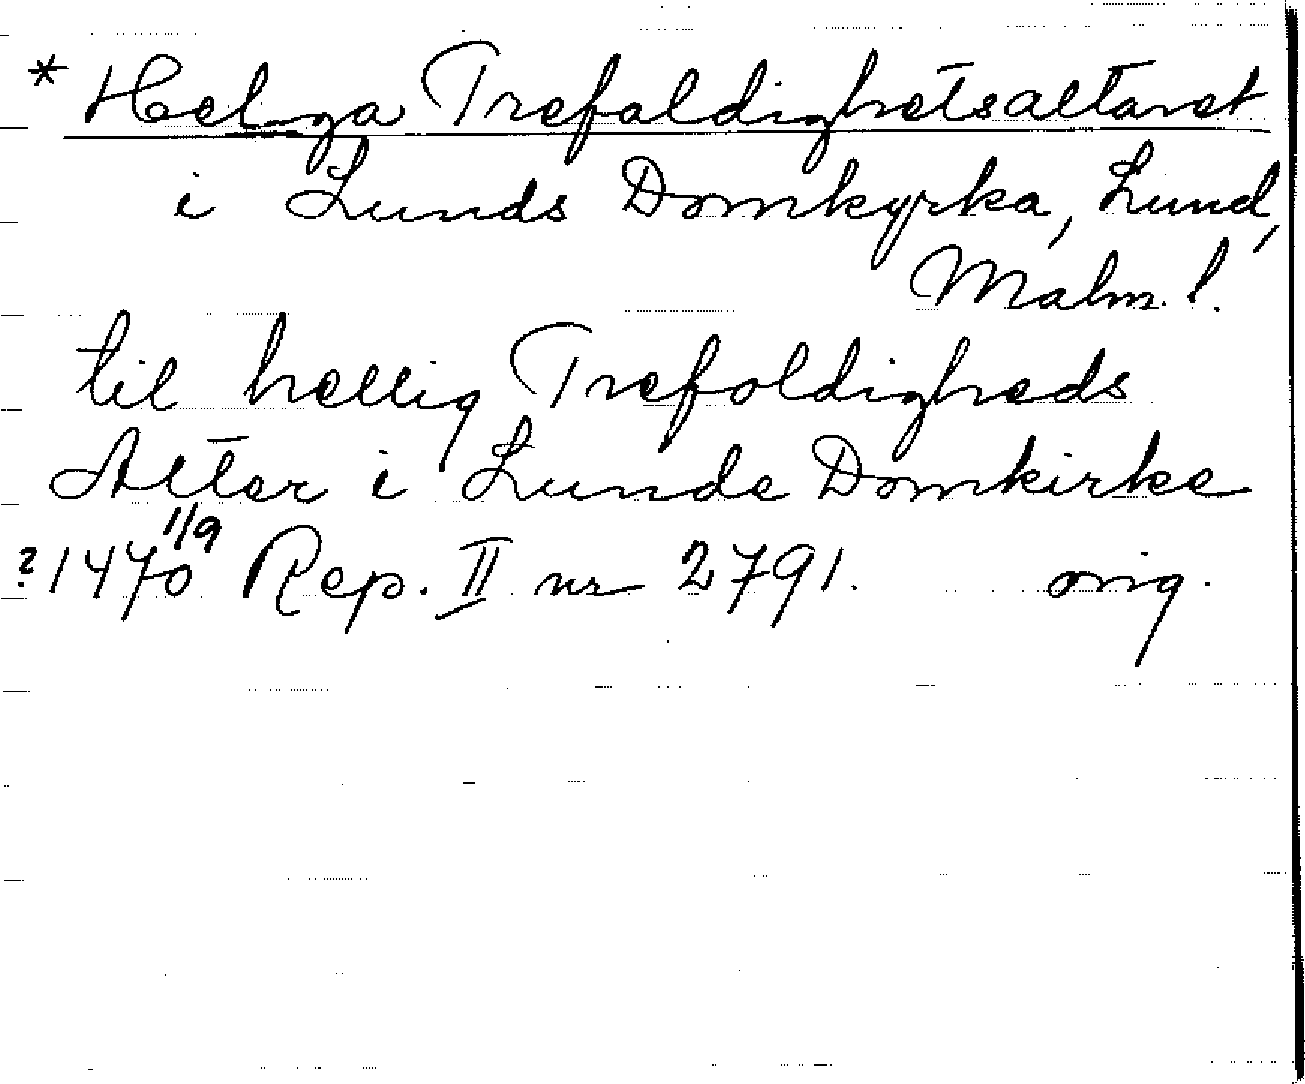 * Helga Trefaldighetsaltaret
i Lunds Domkyrka, Lund,
Malm. l.
til hellig Trefoldigheds
Alter i Lunde Domkirke
? 1470 1/9 Rep. II nr 2791. orig.